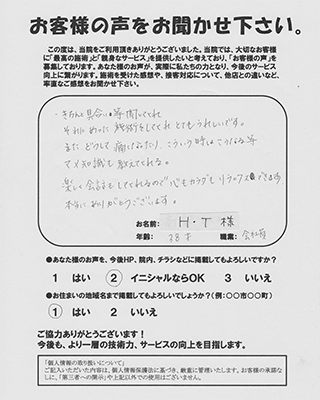 お客様の声をお聞かせ下さい。
この度は、当院をご利用頂きありがとうございました。当院では、大切なお客様
に「最高の施術」と「親身なサービス」を提供したいと考えており、「お客様の声」を
募集しております。あなた様のお声が、実際に私たちの力となり、今後のサービス
向上に繋がります。施術を受けた感想や、接客対応について、他店との違いなど、
率直なご感想をお聞かせ下さい。
きちんと具合い等聞いてくれ
それにあった施術をしてくれ とてもうれしいです。
また どうして痛くなるだり、こういう時はこうなる等
マメ知識も教えてくれる。
楽しく会話もしてくれるので心もカラダもリラックスできます
本当にありがとうございます。
お名前: H・T 様
年齢: 28才 職業: 会社員
●あなた様のお声を、今後HP、院内、チラシなどに掲載してもよろしいですか?
1 はい 2 イニシャルならOK 3 いいえ
●お住まいの地域名まで掲載してもよろしいでしょうか?(例:〇〇市〇〇町)
1 はい 2 いいえ
ご協力ありがとうございます!
今後も、より一層の技術力、サービスの向上を目指します。
「個人情報の取り扱いについて」
ご記入いただいた内容は、個人情報保護法に基づき、厳重に管理いたします。お客様の承諾な
しに、「第三者への開示」や上記以外での使用はございません。